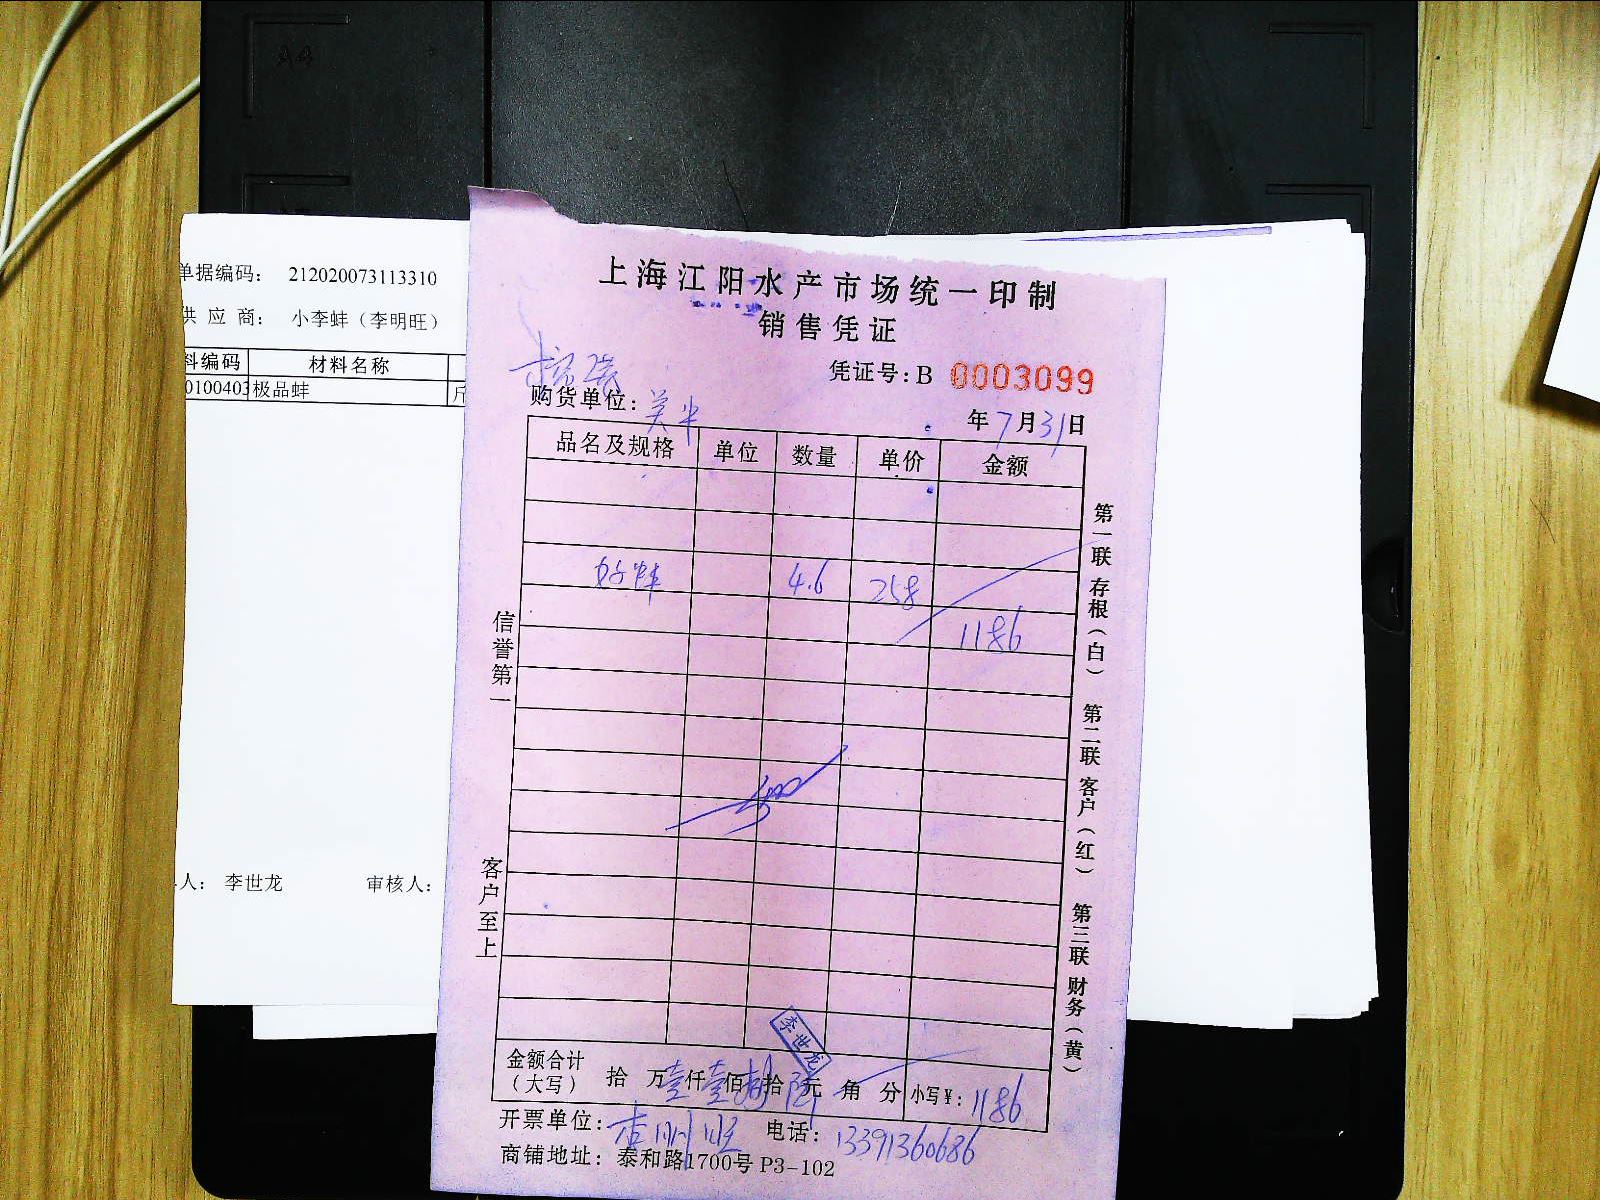 A4
单据编码： 212020073113310
供 应 商： 小李蚌（李明旺）
料编码 材料名称
0100403 极品蚌 斤
人： 李世龙 审核人：
上海江阳水产市场统一印制
销售凭证
凭证号：B 0003099
购货单位：
年 7 月 31 日
品名及规格 单位 数量 单价 金额
好蚌 4.6 258
1186
信誉第一
客户至上
第一联 存根（白） 第二联 客户（红） 第三联 财务（黄）
李世龙
金额合计（大写） 拾 万 壹 仟 壹 佰 捌 拾 陆 元 角 分 小写¥：1186
开票单位：李明旺 电话：13391360686
商铺地址：泰和路1700号 P3-102